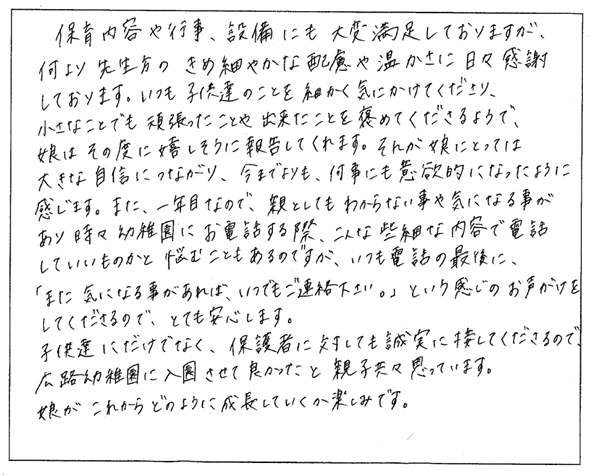 保育内容や行事、設備にも大変満足しておりますが、
何より先生方のきめ細やかな配慮や温かさに日々感謝
しております。いつも子供達のことを細かく気にかけてくださり、
小さなことでも頑張ったことや出来たことを褒めてくださるようで、
娘はその度に嬉しそうに報告してくれます。それが娘にとっては
大きな自信につながり、今までよりも、何事にも意欲的になったように
感じます。また、一年目なので、親としてもわからない事や気になる事が
あり時々幼稚園にお電話する際、こんな些細な内容で電話
していいものかと悩むこともあるのですが、いつも電話の最後に、
「また気になる事があれば、いつでもご連絡下さい。」という感じのお声がけを
してくださるので、とても安心します。
子供達にだけでなく、保護者に対しても誠実に接してくださるので、
広路幼稚園に入園させて良かったと親子共々思っています。
娘がこれからどのように成長していくか楽しみです。